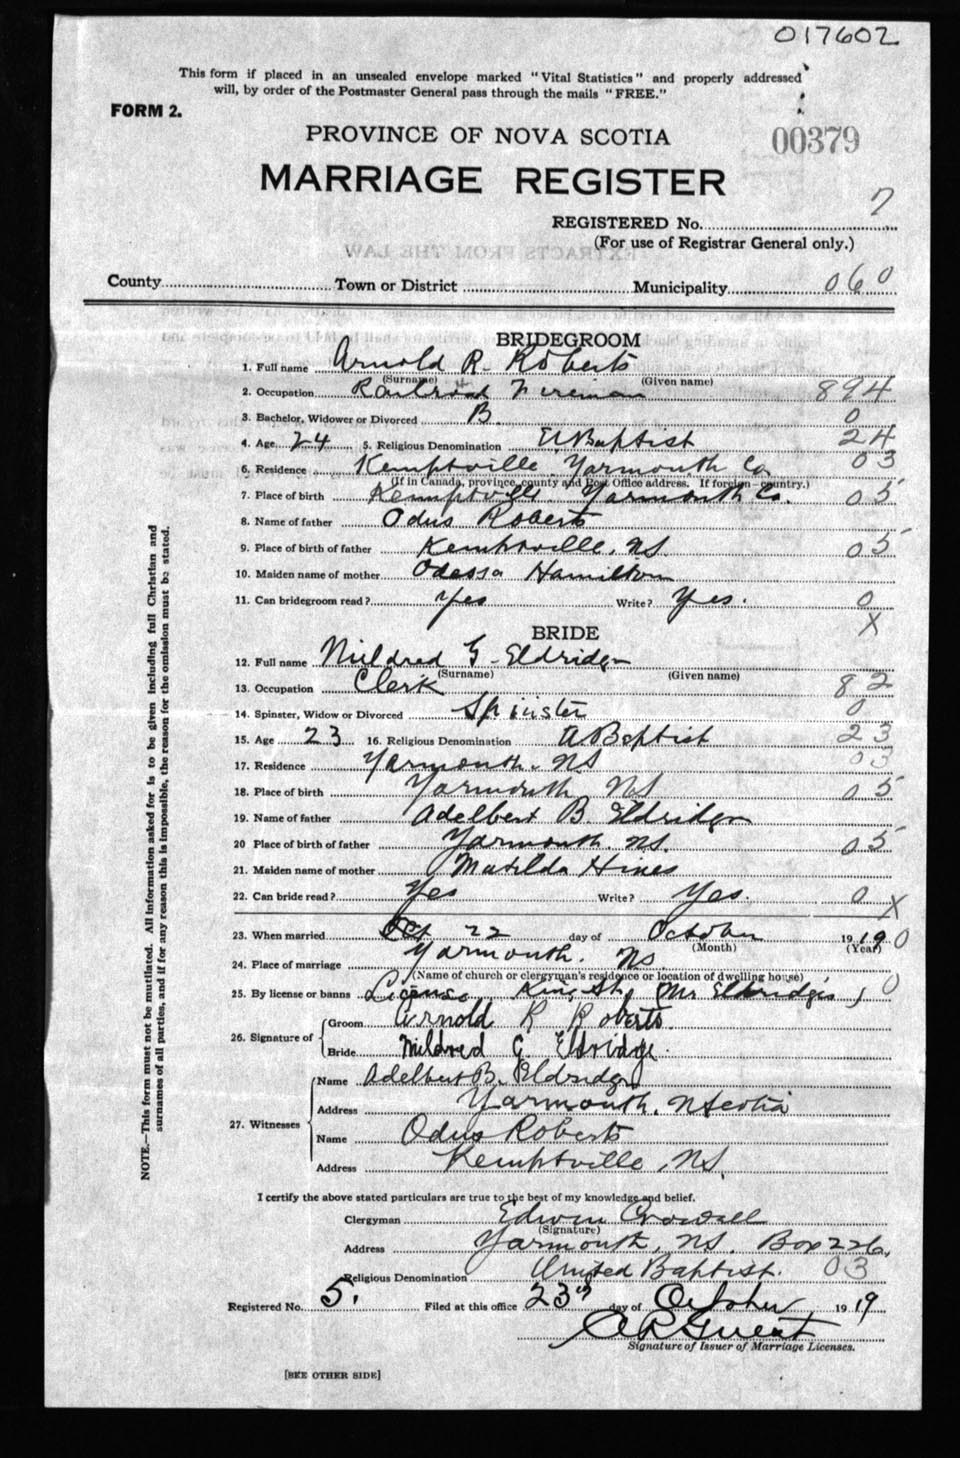 017602
This form if placed in an unsealed envelope marked "Vital Statistics" and properly addressed
will, by order of the Postmaster General pass through the mails "FREE."
FORM 2.
PROVINCE OF NOVA SCOTIA
00379
MARRIAGE REGISTER
7
REGISTERED No.
(For use of Registrar General only.)
EXTRACTS FROM THE LAW
County Town or District Municipality 060
BRIDEGROOM
1. Full name Arnold R. Roberts
(Surname) (Given name)
2. Occupation Railroad Fireman 894
3. Bachelor, Widower or Divorced B. 0
4. Age 24 5. Religious Denomination U Baptist 24
6. Residence Kemptville Yarmouth Co. 03
(If in Canada, province, county and Post Office address. If foreign—country.)
7. Place of birth Kemptville Yarmouth Co. 05
8. Name of father Odus Roberts
9. Place of birth of father Kemptville, NS 05
10. Maiden name of mother Odessa Hamilton
11. Can bridegroom read? Yes Write? Yes. 0
X
BRIDE
12. Full name Mildred G. Eldridge
(Surname) (Given name)
13. Occupation Clerk 82
14. Spinster, Widow or Divorced Spinster 0
15. Age 23 16. Religious Denomination U Baptist 23
17. Residence Yarmouth. NS 03
18. Place of birth Yarmouth NS 05
19. Name of father Adelbert B. Eldridge
20 Place of birth of father Yarmouth. NS. 05
21. Maiden name of mother Matilda Hines
22. Can bride read? Yes Write? Yes. 0 X
23. When married Oct 22 day of October 1919 0
(Month) (Year)
24. Place of marriage Yarmouth. NS.
(Name of church or clergyman's residence or location of dwelling house)
25. By license or banns License King St, Mr Eldridge's 0
26. Signature of Groom Arnold R Roberts.
Bride Mildred G. Eldridge.
27. Witnesses
Name Adelbert B. Eldridge
Address Yarmouth. N Scotia
Name Odus Roberts
Address Kemptville, NS.
I certify the above stated particulars are true to the best of my knowledge and belief.
Clergyman Edwin Crowell
(Signature)
Address Yarmouth, NS. Box 226,
Religious Denomination United Baptist. 03
Registered No. 5. Filed at this office 23rd day of October 1919
A R Guest
Signature of Issuer of Marriage Licenses.
[SEE OTHER SIDE]
NOTE.—This form must not be mutilated. All information asked for is to be given including full Christian and
surnames of all parties, and if for any reason this is impossible, the reason for the omission must be stated.